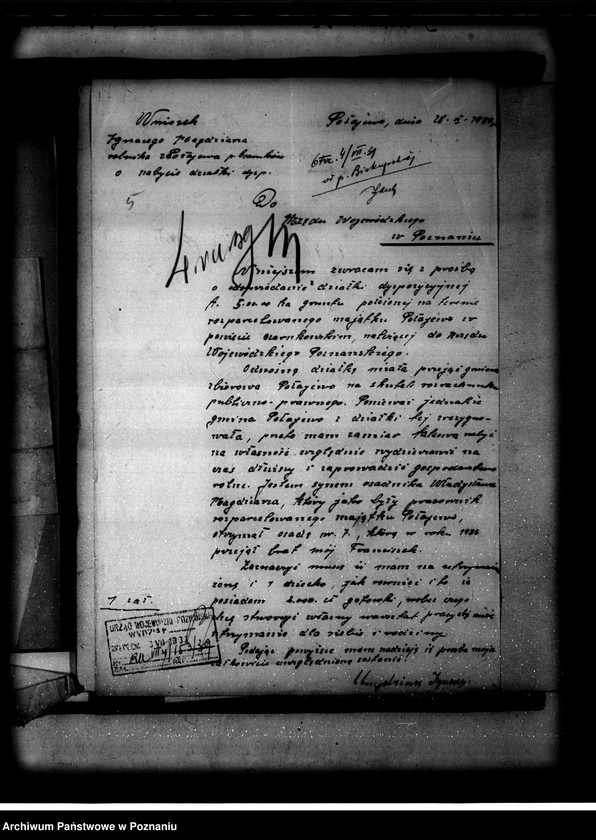 Wniosek
Ignacego Magdziarza
rolnika z Połajewa p. Czarnków
o nabycie działki dysp.
Połajewo, dnia 28. 5. 1939
4/VII.39
5
Do
Urzędu Wojewódzkiego
w Poznaniu
Niniejszem zwracam się z prośbą
o odsprzedanie działki dyspozycyjnej
A. 5.00.00 ha gruntu położonej na terenie
rozparcelowanego majątku Połajewo w
powiecie czarnkowskim, należącej do Urzędu
Wojewódzkiego Poznańskiego.
Odnośną działkę miała przejąć gmina
zbiorowa Połajewo na skutek rozrachunku
publiczno-prawnego. Ponieważ jednakże
gmina Połajewo z działki tej zrezygno-
wała, przeto mam zamiar takową nabyć
na własność względnie wydzierżawić na
czas dłuższy i zaprowadzić gospodarstwo
rolne. Jestem synem osadnika Władysława
Magdziarza, który jako były pracownik
rozparcelowanego majątku Połajewo,
otrzymał osadę nr. 7, którą w roku
przejął brat mój Franciszek.
Zaznaczyć muszę iż mam na utrzymaniu
żonę i 1 dziecko, jak również i to że
posiadam 2.000 zł gotówki, wobec czego
chcę stworzyć własny warsztat pracy
utrzymanie dla siebie i rodziny.
Podając powyższe mam nadzieję iż prośba moja
uwzględniona zostanie.
Magdziarz Ignacy.
1 zał.
URZĄD WOJEWÓDZKI POZNAŃSKI
WYDZIAŁ
Archiwum Państwowe w Poznaniu